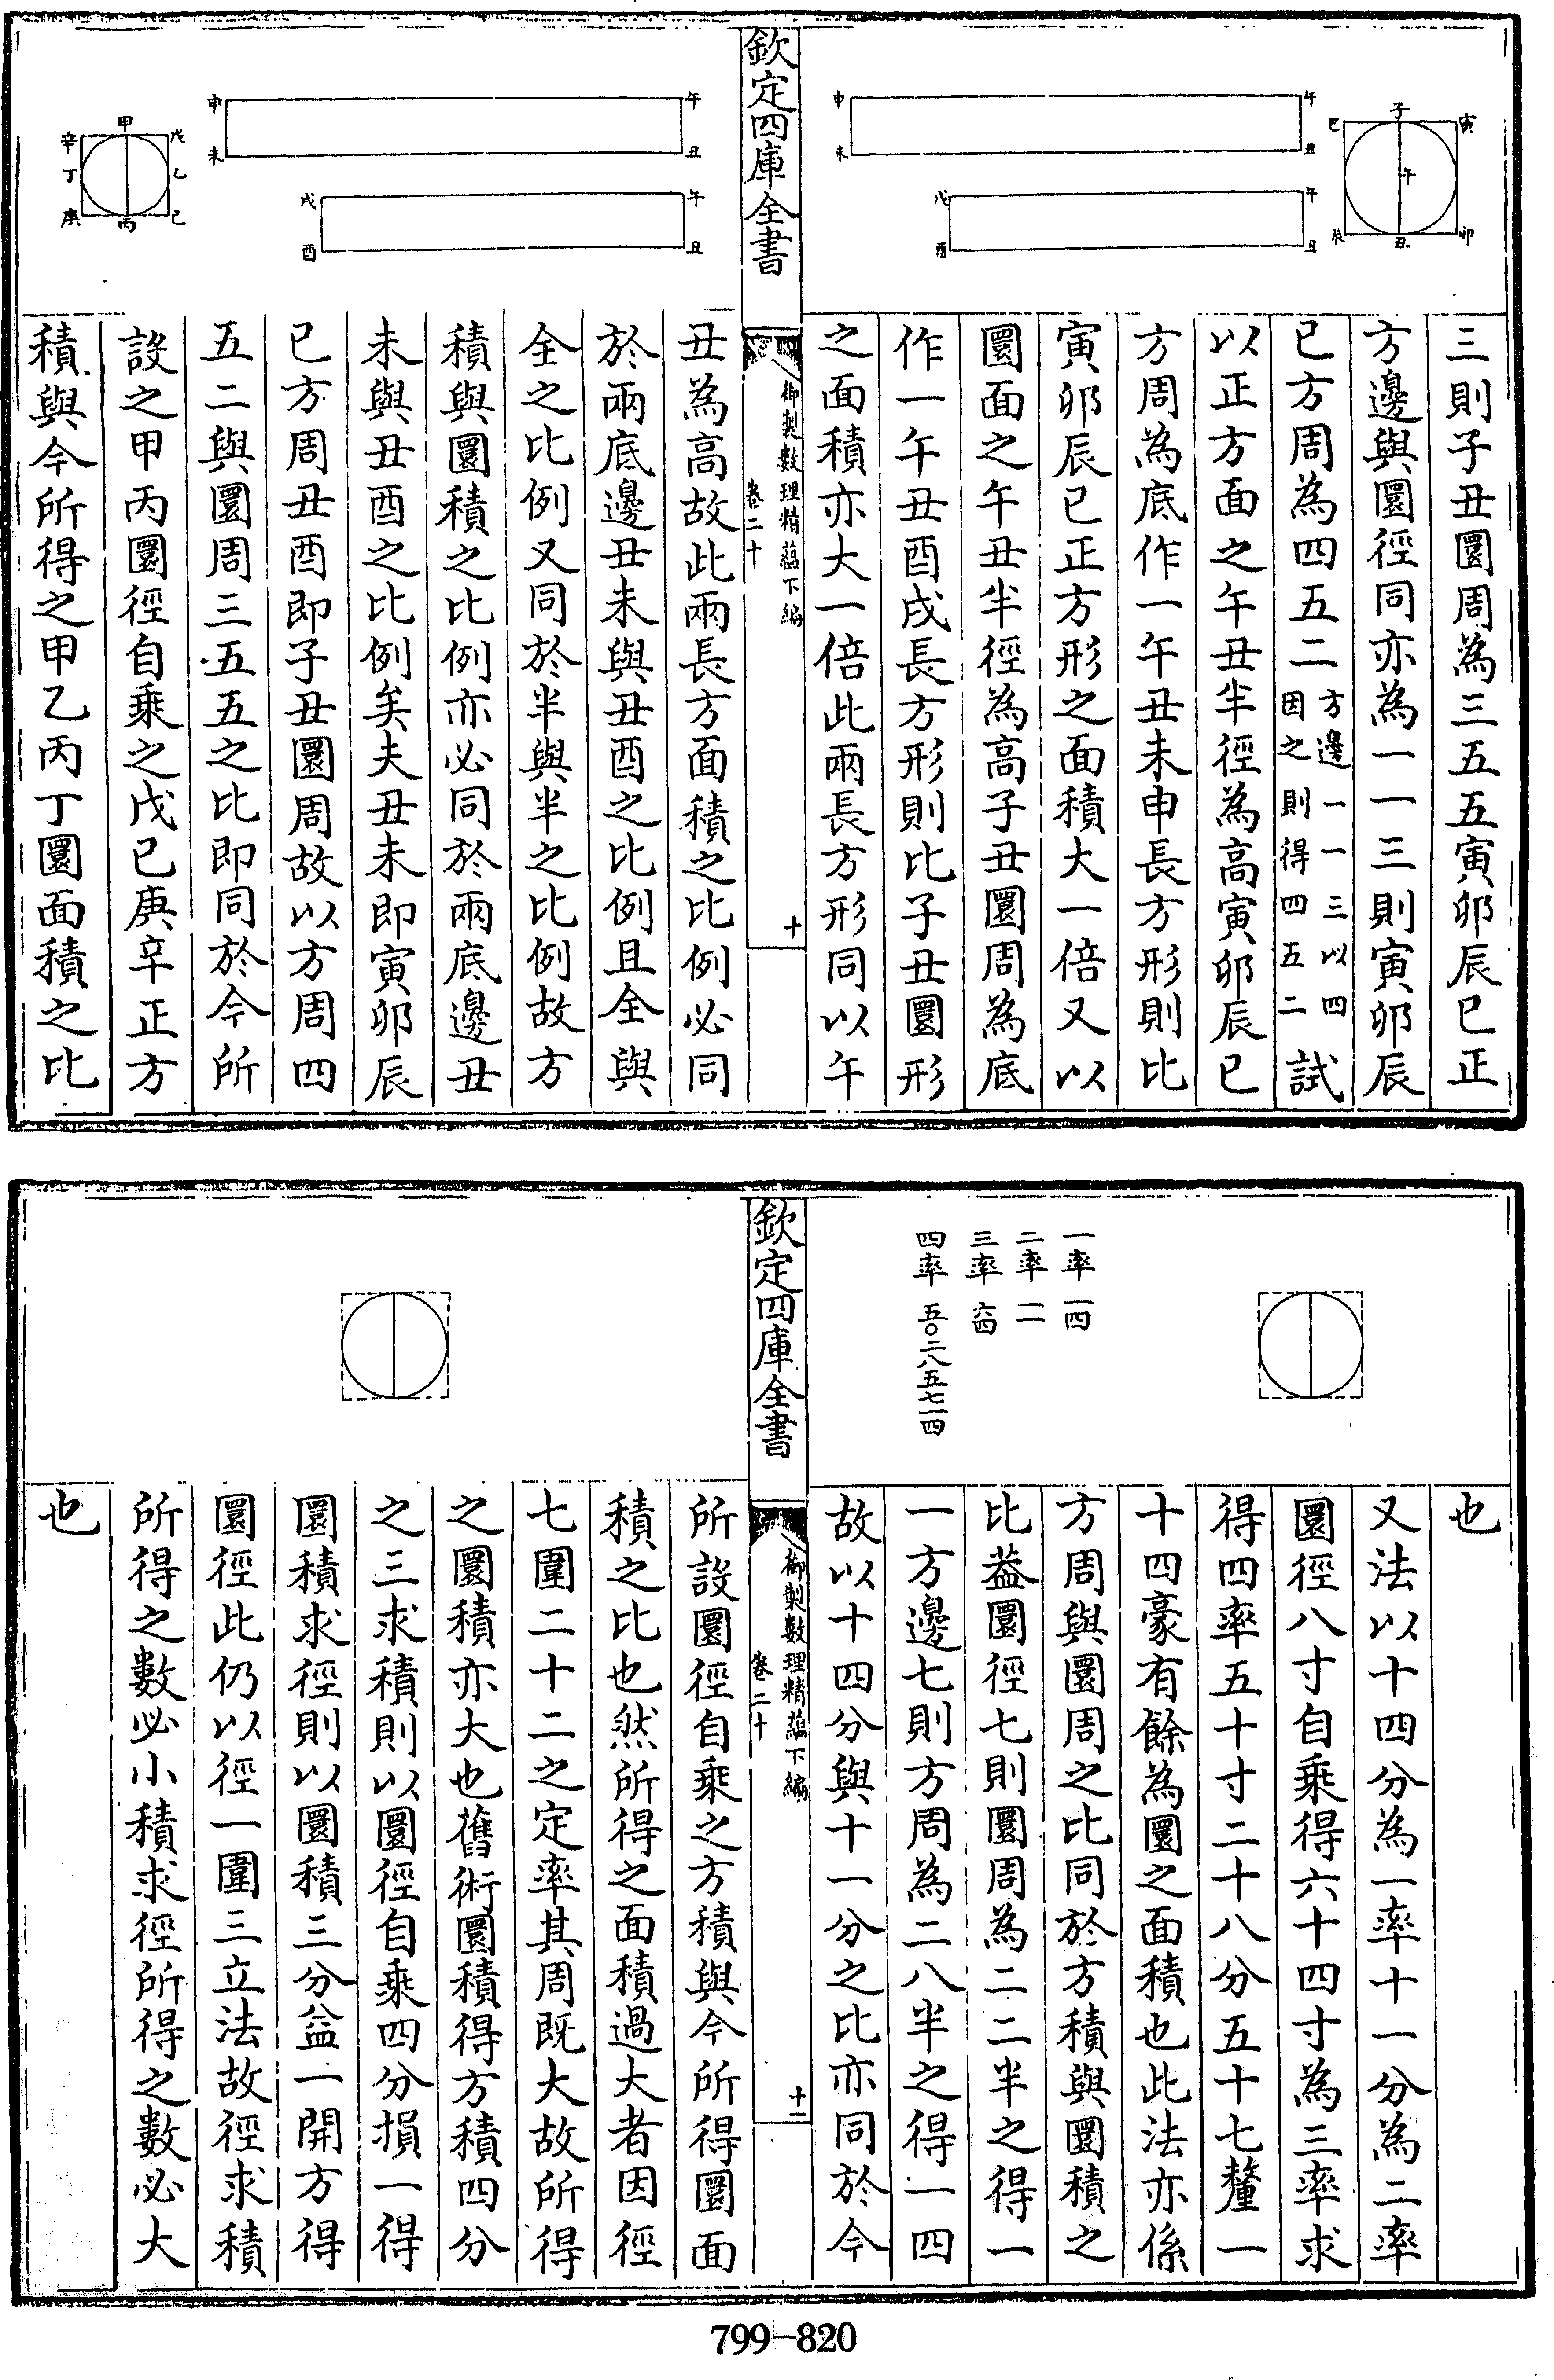 子
寅
巳
午
辰
丑
卯
申
午
未
丑
戌
午
酉
丑
三則子丑圜周為三五五寅卯辰巳正
方邊與圜徑同亦為一一三則寅卯辰
巳方周為四五二方邊一一三以四因之則得四五二試
以正方面之午丑半徑為高寅卯辰巳
方周為底作一午丑未申長方形則比
寅卯辰巳正方形之面積大一倍又以
圜面之午丑半徑為高子丑圜周為底
作一午丑酉戌長方形則比子丑圜形
之面積亦大一倍此兩長方形同以午
欽定四庫全書
御製數理精蘊下編
卷二十
十
申
午
未
丑
戌
午
酉
丑
甲
辛
戊
丁
乙
庚
丙
己
丑為高故此兩長方面積之比例必同
於兩底邊丑未與丑酉之比例且全與
全之比例又同於半與半之比例故方
積與圜積之比例亦必同於兩底邊丑
未與丑酉之比例矣夫丑未即寅卯辰
巳方周丑酉即子丑圜周故以方周四
五二與圜周三五五之比即同於今所
設之甲丙圜徑自乘之戊己庚辛正方
積與今所得之甲乙丙丁圜面積之比
一率 一四
二率 一一
三率 六四
四率 五〇二八五七一四
也
又法以十四分為一率十一分為二率
圜徑八寸自乘得六十四寸為三率求
得四率五十寸二十八分五十七釐一
十四豪有餘為圜之面積也此法亦係
方周與圜周之比同於方積與圜積之
比葢圜徑七則圜周為二二半之得一
一方邊七則方周為二八半之得一四
故以十四分與十一分之比亦同於今
欽定四庫全書
御製數理精蘊下編
卷二十
十一
所設圜徑自乘之方積與今所得圜面
積之比也然所得之面積過大者因徑
七圍二十二之定率其周既大故所得
之圜積亦大也舊術圜積得方積四分
之三求積則以圜徑自乘四分損一得
圜積求徑則以圜積三分益一開方得
圜徑此仍以徑一圍三立法故徑求積
所得之數必小積求徑所得之數必大
也
799-820